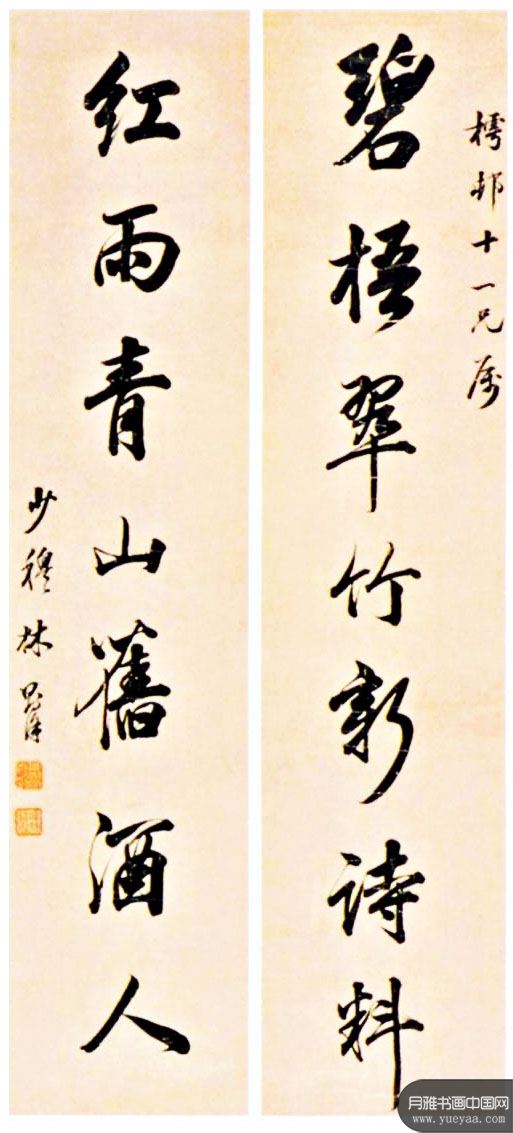 樗邨十一兄属
碧梧翠竹新诗料
红雨青山舊酒人
少穆林则徐
月雅书画中国网
www.yueyaa.com